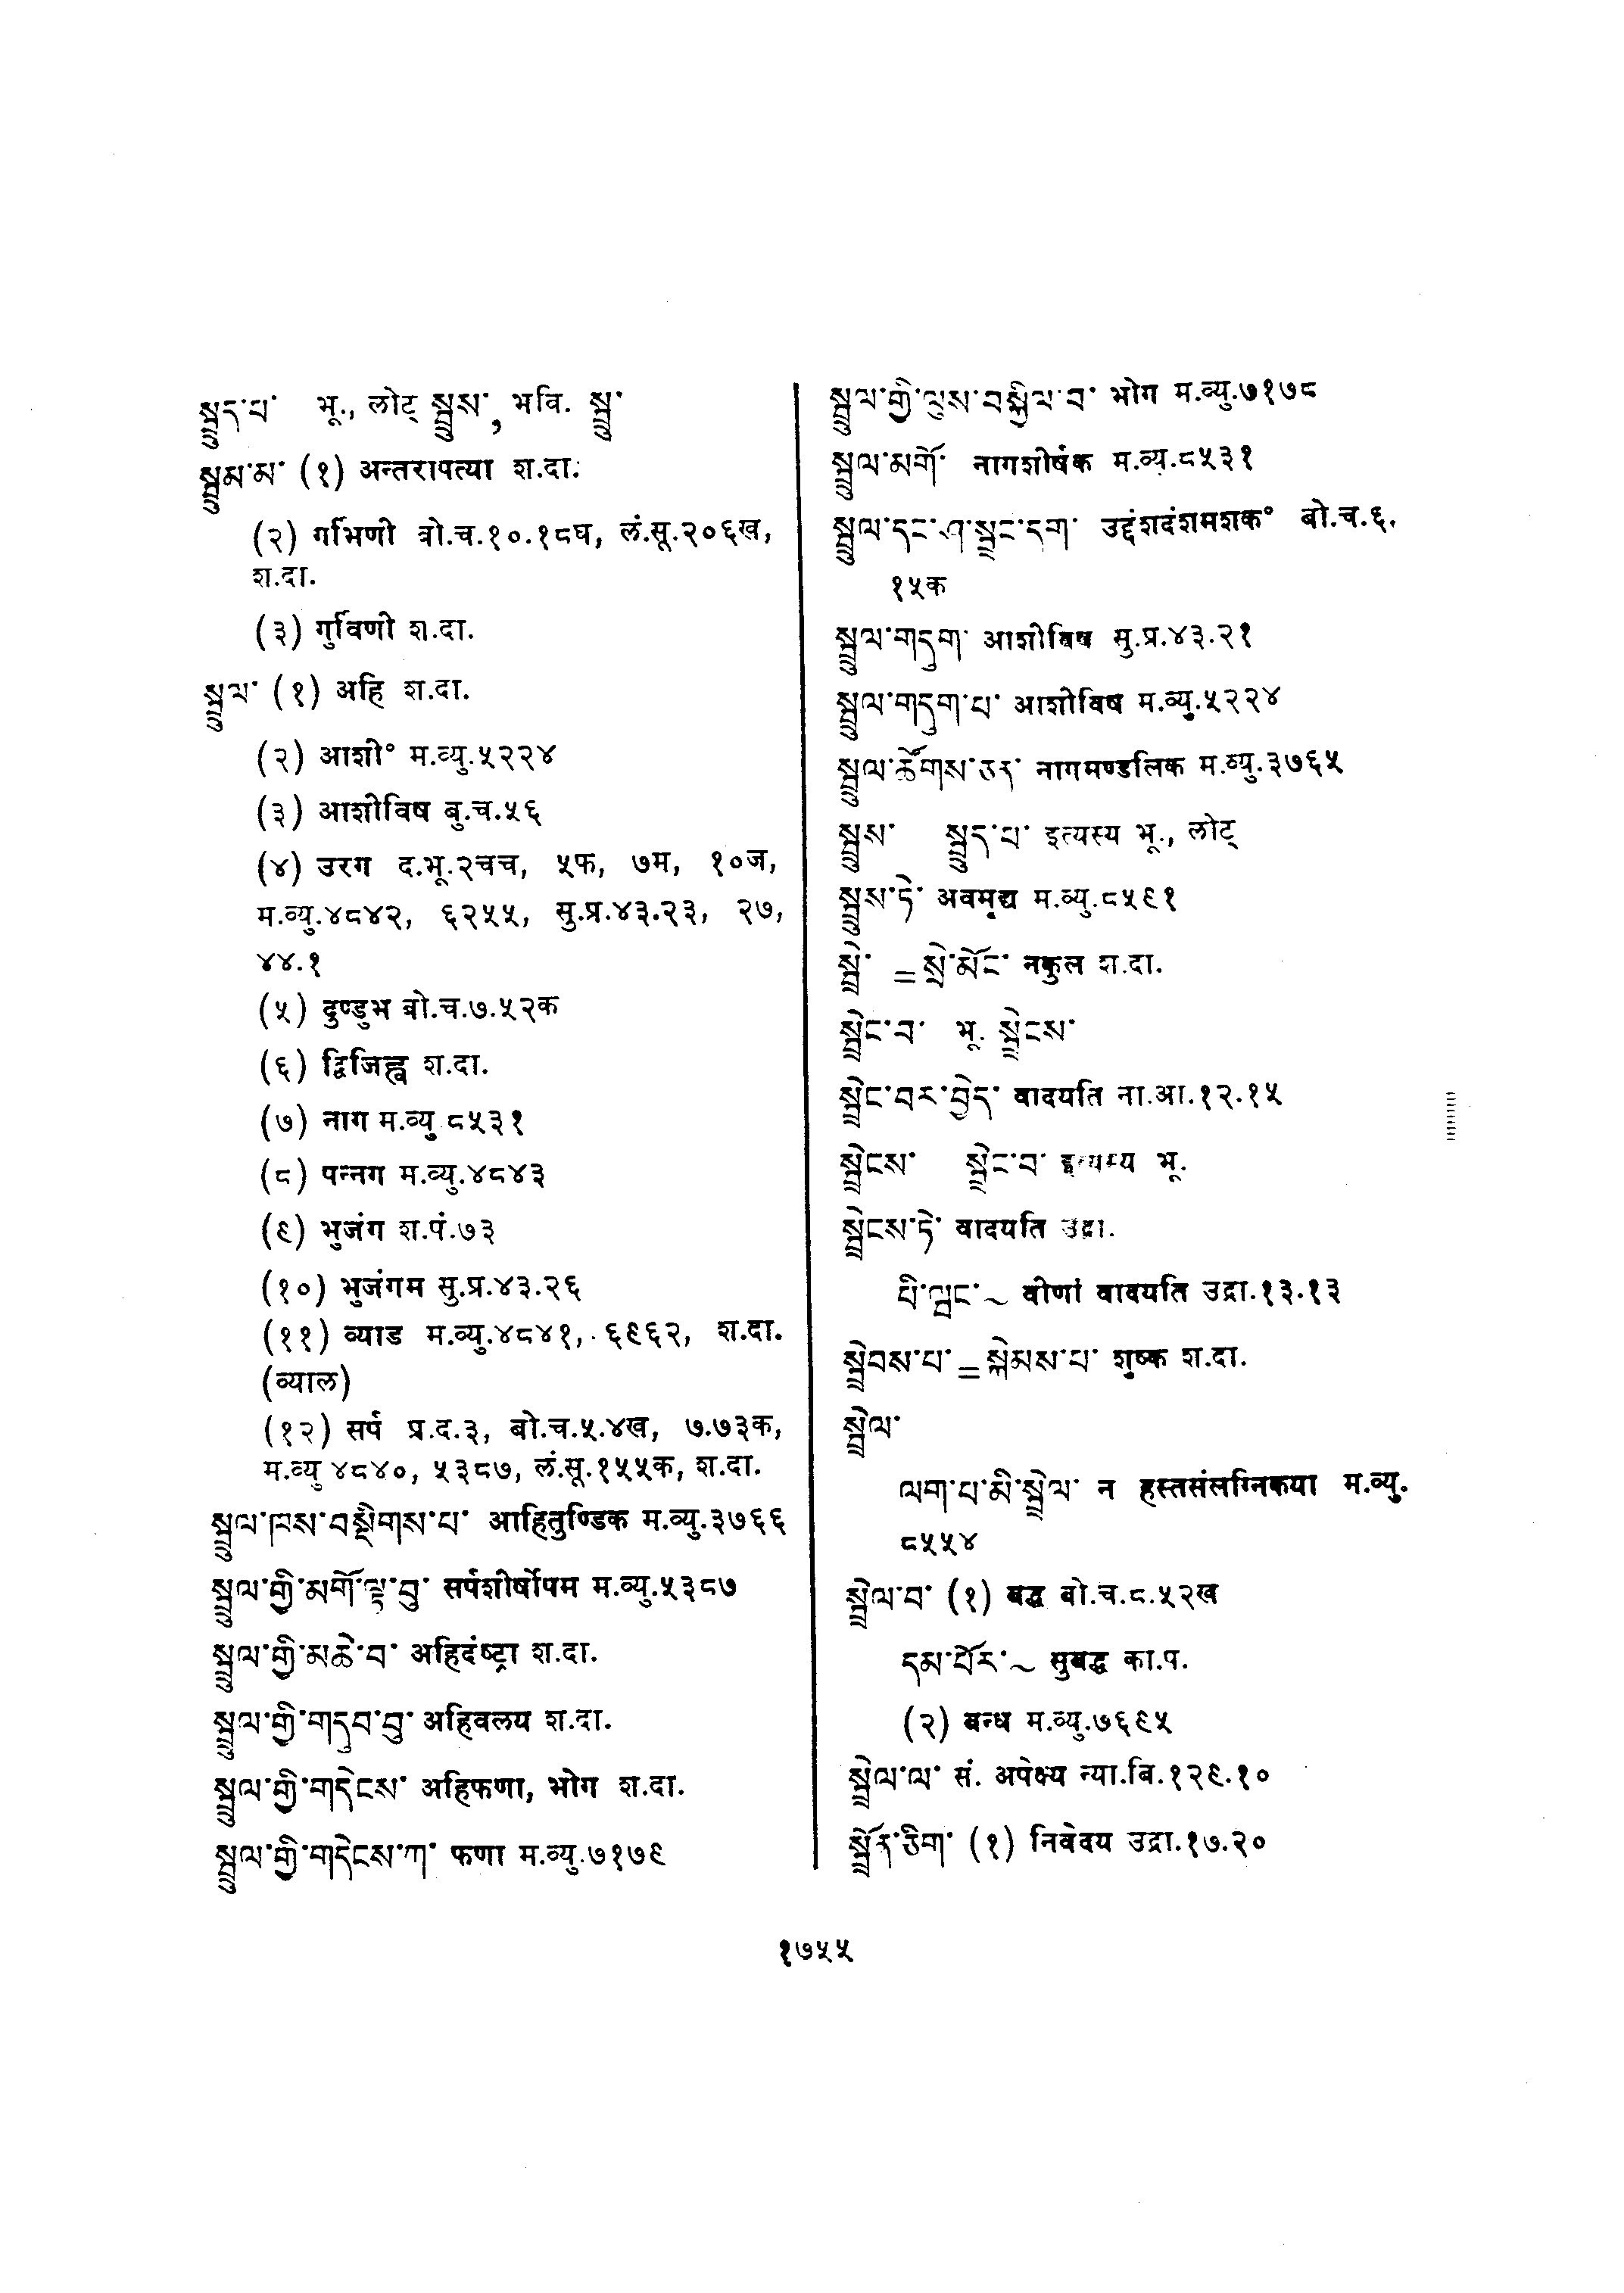 སྦྲུད་པ་ भू., लोट् སྦྲུས་, भवि. སྦྲུ་
སྦྲུམ་མ་ (१) अन्तरापत्या श.दा.
(२) गर्भिणी बो.च.१०.१८घ, लं.सू.२०६ख,
श.दा.
(३) गुर्विणी श.दा.
སྦྲུལ་ (१) अहि श.दा.
(२) आशी° म.व्यु.५२२४
(३) आशीविष बु.च.५६
(४) उरग द.भू.२चच, ५फ, ७म, १०ज,
म.व्यु.४८४२, ६२५५, सु.प्र.४३.२३, २७,
४४.१
(५) दुण्डुभ बो.च.७.५२क
(६) द्विजिह्व श.दा.
(७) नाग म.व्यु ८५३१
(८) पन्नग म.व्यु.४८४३
(९) भुजंग श.पं.७३
(१०) भुजंगम सु.प्र.४३.२६
(११) व्याड म.व्यु.४८४१, ६९६२, श.दा.
(व्याल)
(१२) सर्प प्र.द.३, बो.च.५.४ख, ७.७३क,
म.व्यु ४८४०, ५३८७, लं.सू.१५५क, श.दा.
སྦྲུལ་ཁས་བསྡིགས་པ་ आहितुण्डिक म.व्यु.३७६६
སྦྲུལ་གྱི་མགོ་ལྟ་བུ་ सर्पशीर्षोपम म.व्यु.५३८७
སྦྲུལ་གྱི་མཆེ་བ་ अहिदंष्ट्रा श.दा.
སྦྲུལ་གྱི་གདུབ་བུ་ अहिवलय श.दा.
སྦྲུལ་གྱི་གདེངས་ अहिफणा, भोग श.दा.
སྦྲུལ་གྱི་གདེངས་ཀ་ फणा म.व्यु.७१७९
སྦྲུལ་གྱི་ལུས་བསྐྱིལ་བ་ भोग म.व्यु.७१७८
སྦྲུལ་མགོ་ नागशीर्षक म.व्यु.८५३१
སྦྲུལ་དང་ཤ་སྦྲང་དག་ उद्दंशदंशमशक° बो.च.६.
१५क
སྦྲུལ་གདུག་ आशीविष सु.प्र.४३.२१
སྦྲུལ་གདུག་པ་ आशीविष म.व्यु.५२२४
སྦྲུལ་ཚོགས་ཅན་ नागमण्डलिक म.व्यु.३७६५
སྦྲུས་ སྦྲུད་པ་ इत्यस्य भू., लोट्
སྦྲུས་ཏེ་ अवमृद्य म.व्यु.८५९१
སྦྲེ་ = སྲེ་མོང་ नकुल श.दा.
སྦྲེང་བ་ भू. སྦྲེངས་
སྦྲེང་བར་བྱེད་ वादयति ना.आ.१२.१५
སྦྲེངས་ སྦྲེང་བ་ इत्यस्य भू.
སྦྲེངས་ཏེ་ वादयति उद्रा.
པི་ཝང་~ वीणां वादयति उद्रा.१३.१३
སྦྲེབས་པ་ = སྐེམས་པ་ शुष्क श.दा.
སྦྲེལ་
ལག་པ་མི་སྦྲེལ་ न हस्तसंलग्निकया म.व्यु.
८५५४
སྦྲེལ་བ་ (१) बद्ध बो.च.८.५२ख
དམ་པོར་~ सुबद्ध का.प.
(२) बन्ध म.व्यु.७६९५
སྦྲེལ་ལ་ सं. अपेक्ष्य न्या.बि.१२९.१०
སྦྲོན་ཅིག་ (१) निवेदय उद्रा.१७.२०
१७५५